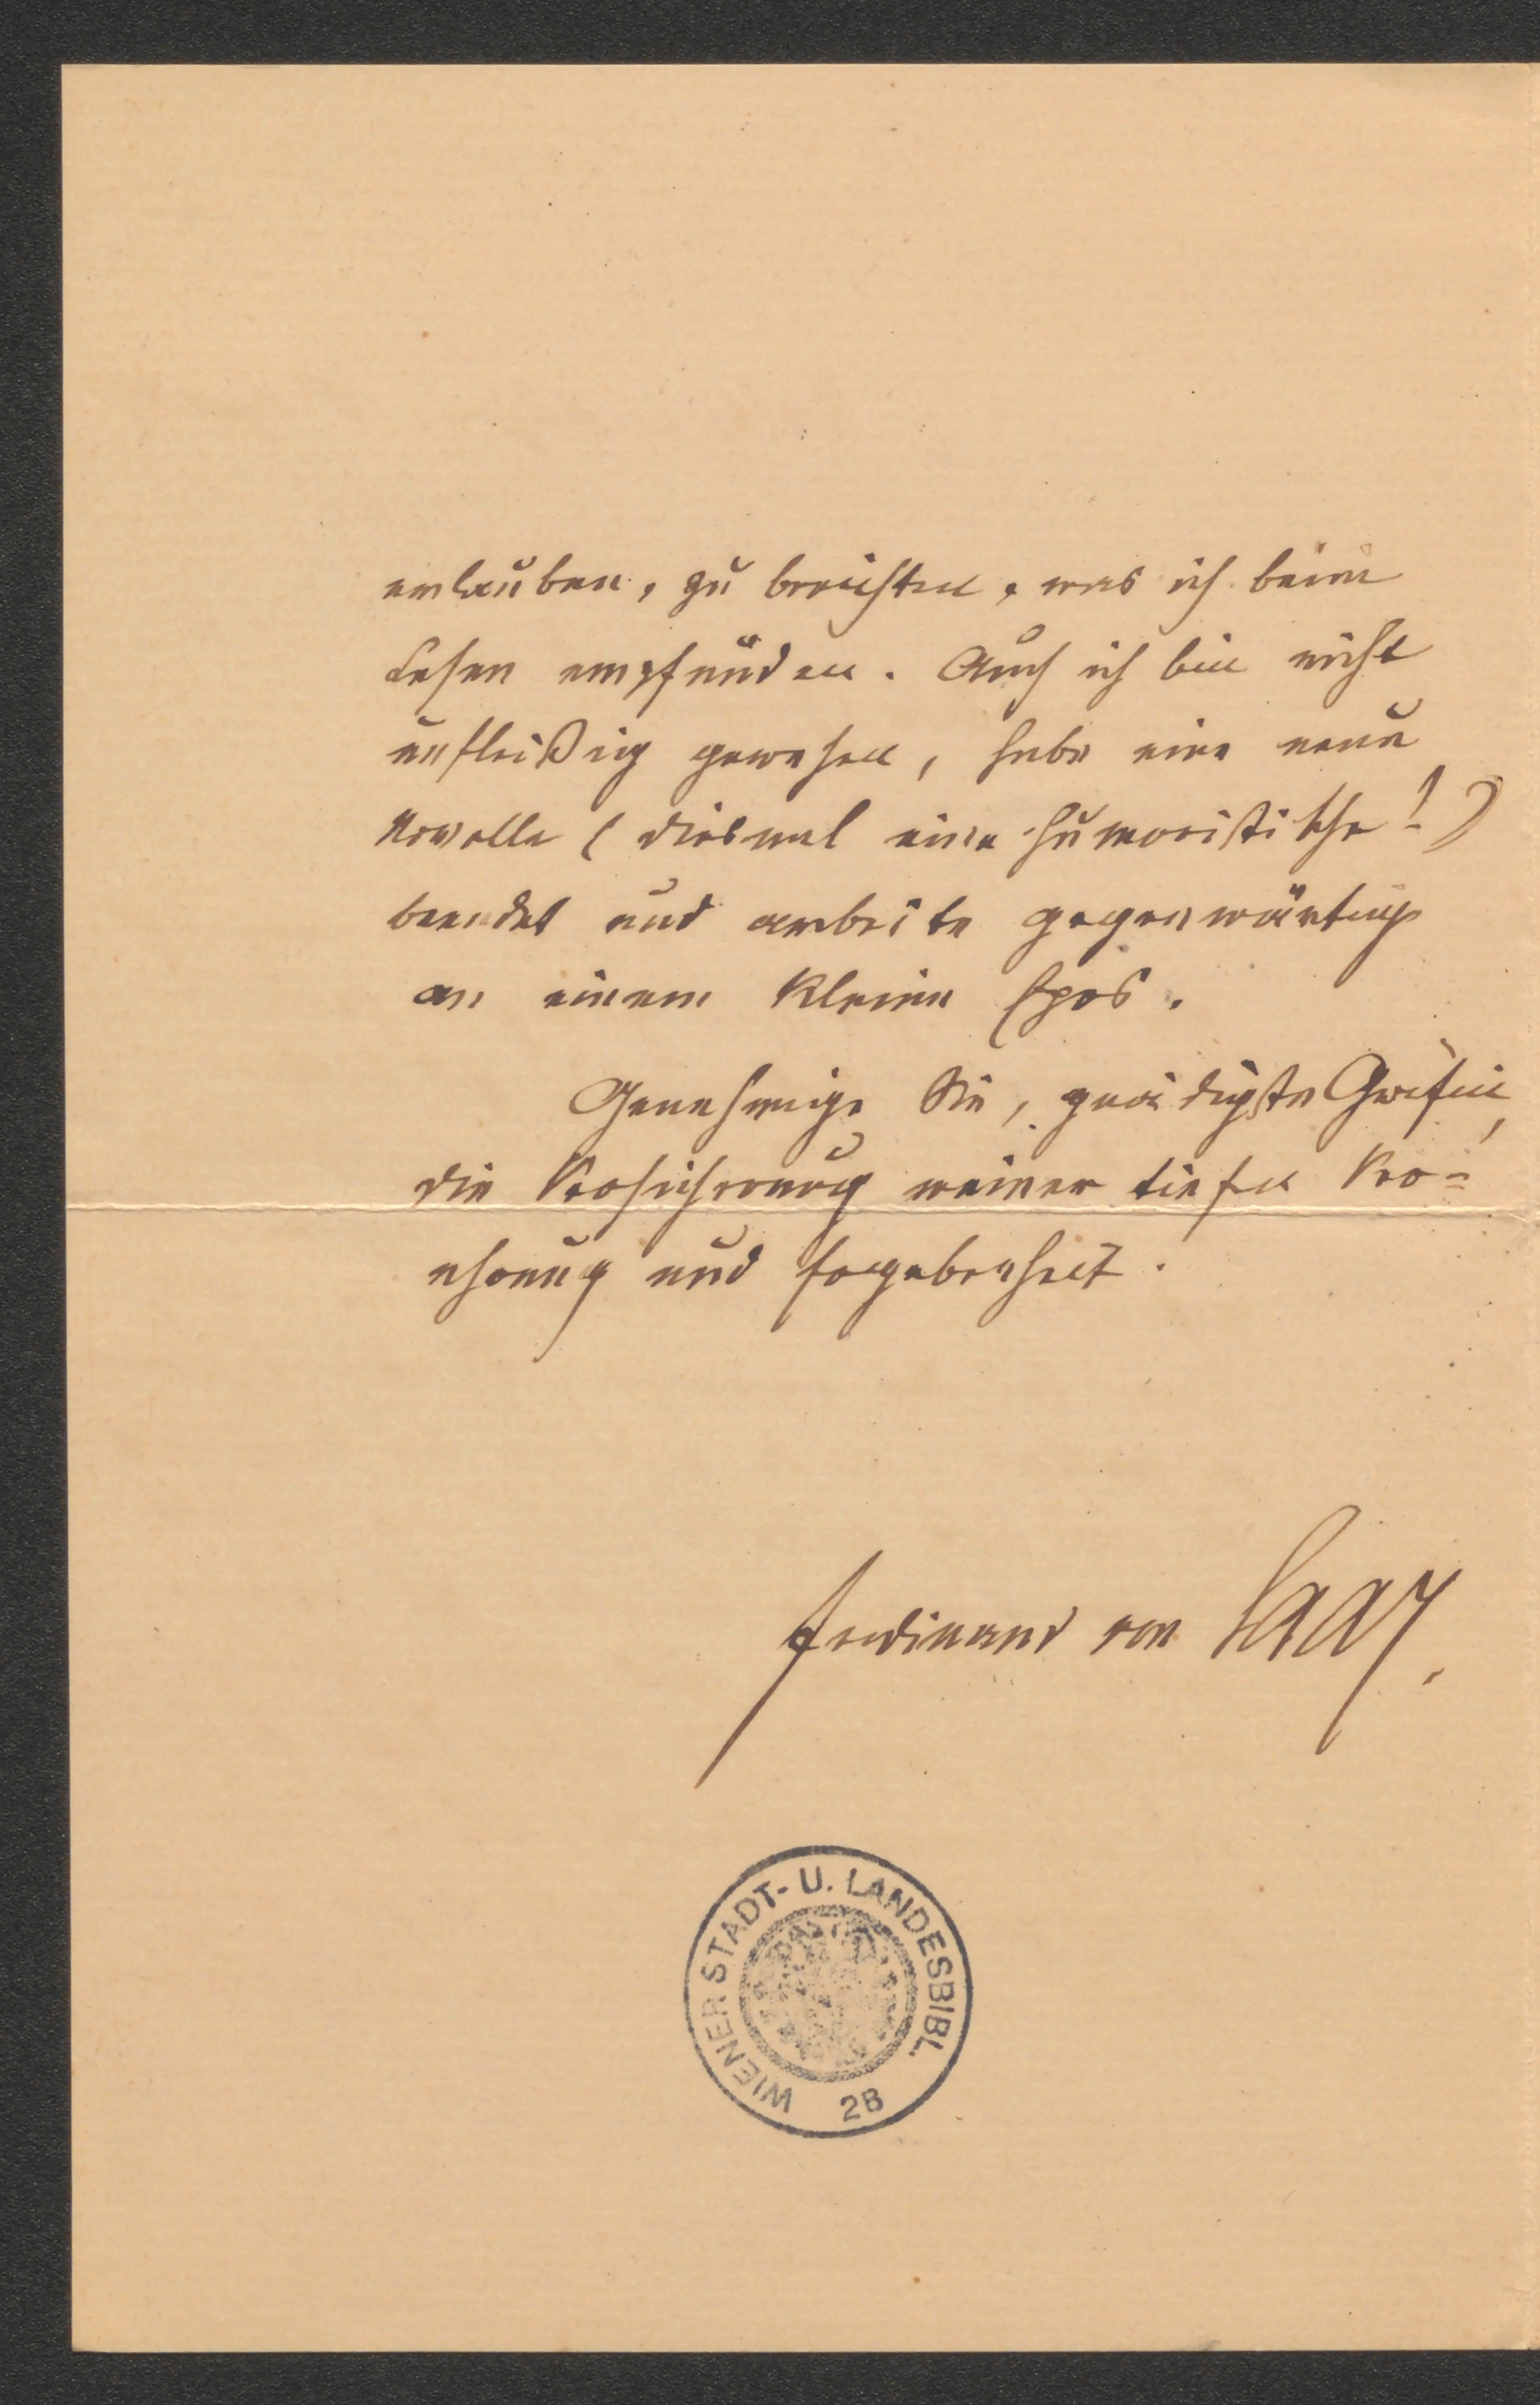 erlauben, zu berichten, was ich beim
Lesen empfunden. Auch ich bin nicht
unfleißig gewesen, habe eine neue
Novelle (diesmal eine humoristische!)
beendet und arbeite gegenwärtig
an einem kleinen Epos.
Genehmigen Sie, gnädigste Gräfin,
die Versicherung meiner tiefen Ver=
ehrung und Ergebenheit.
Ferdinand von Saar.
WIENER STADT- U. LANDESBIBL.
28